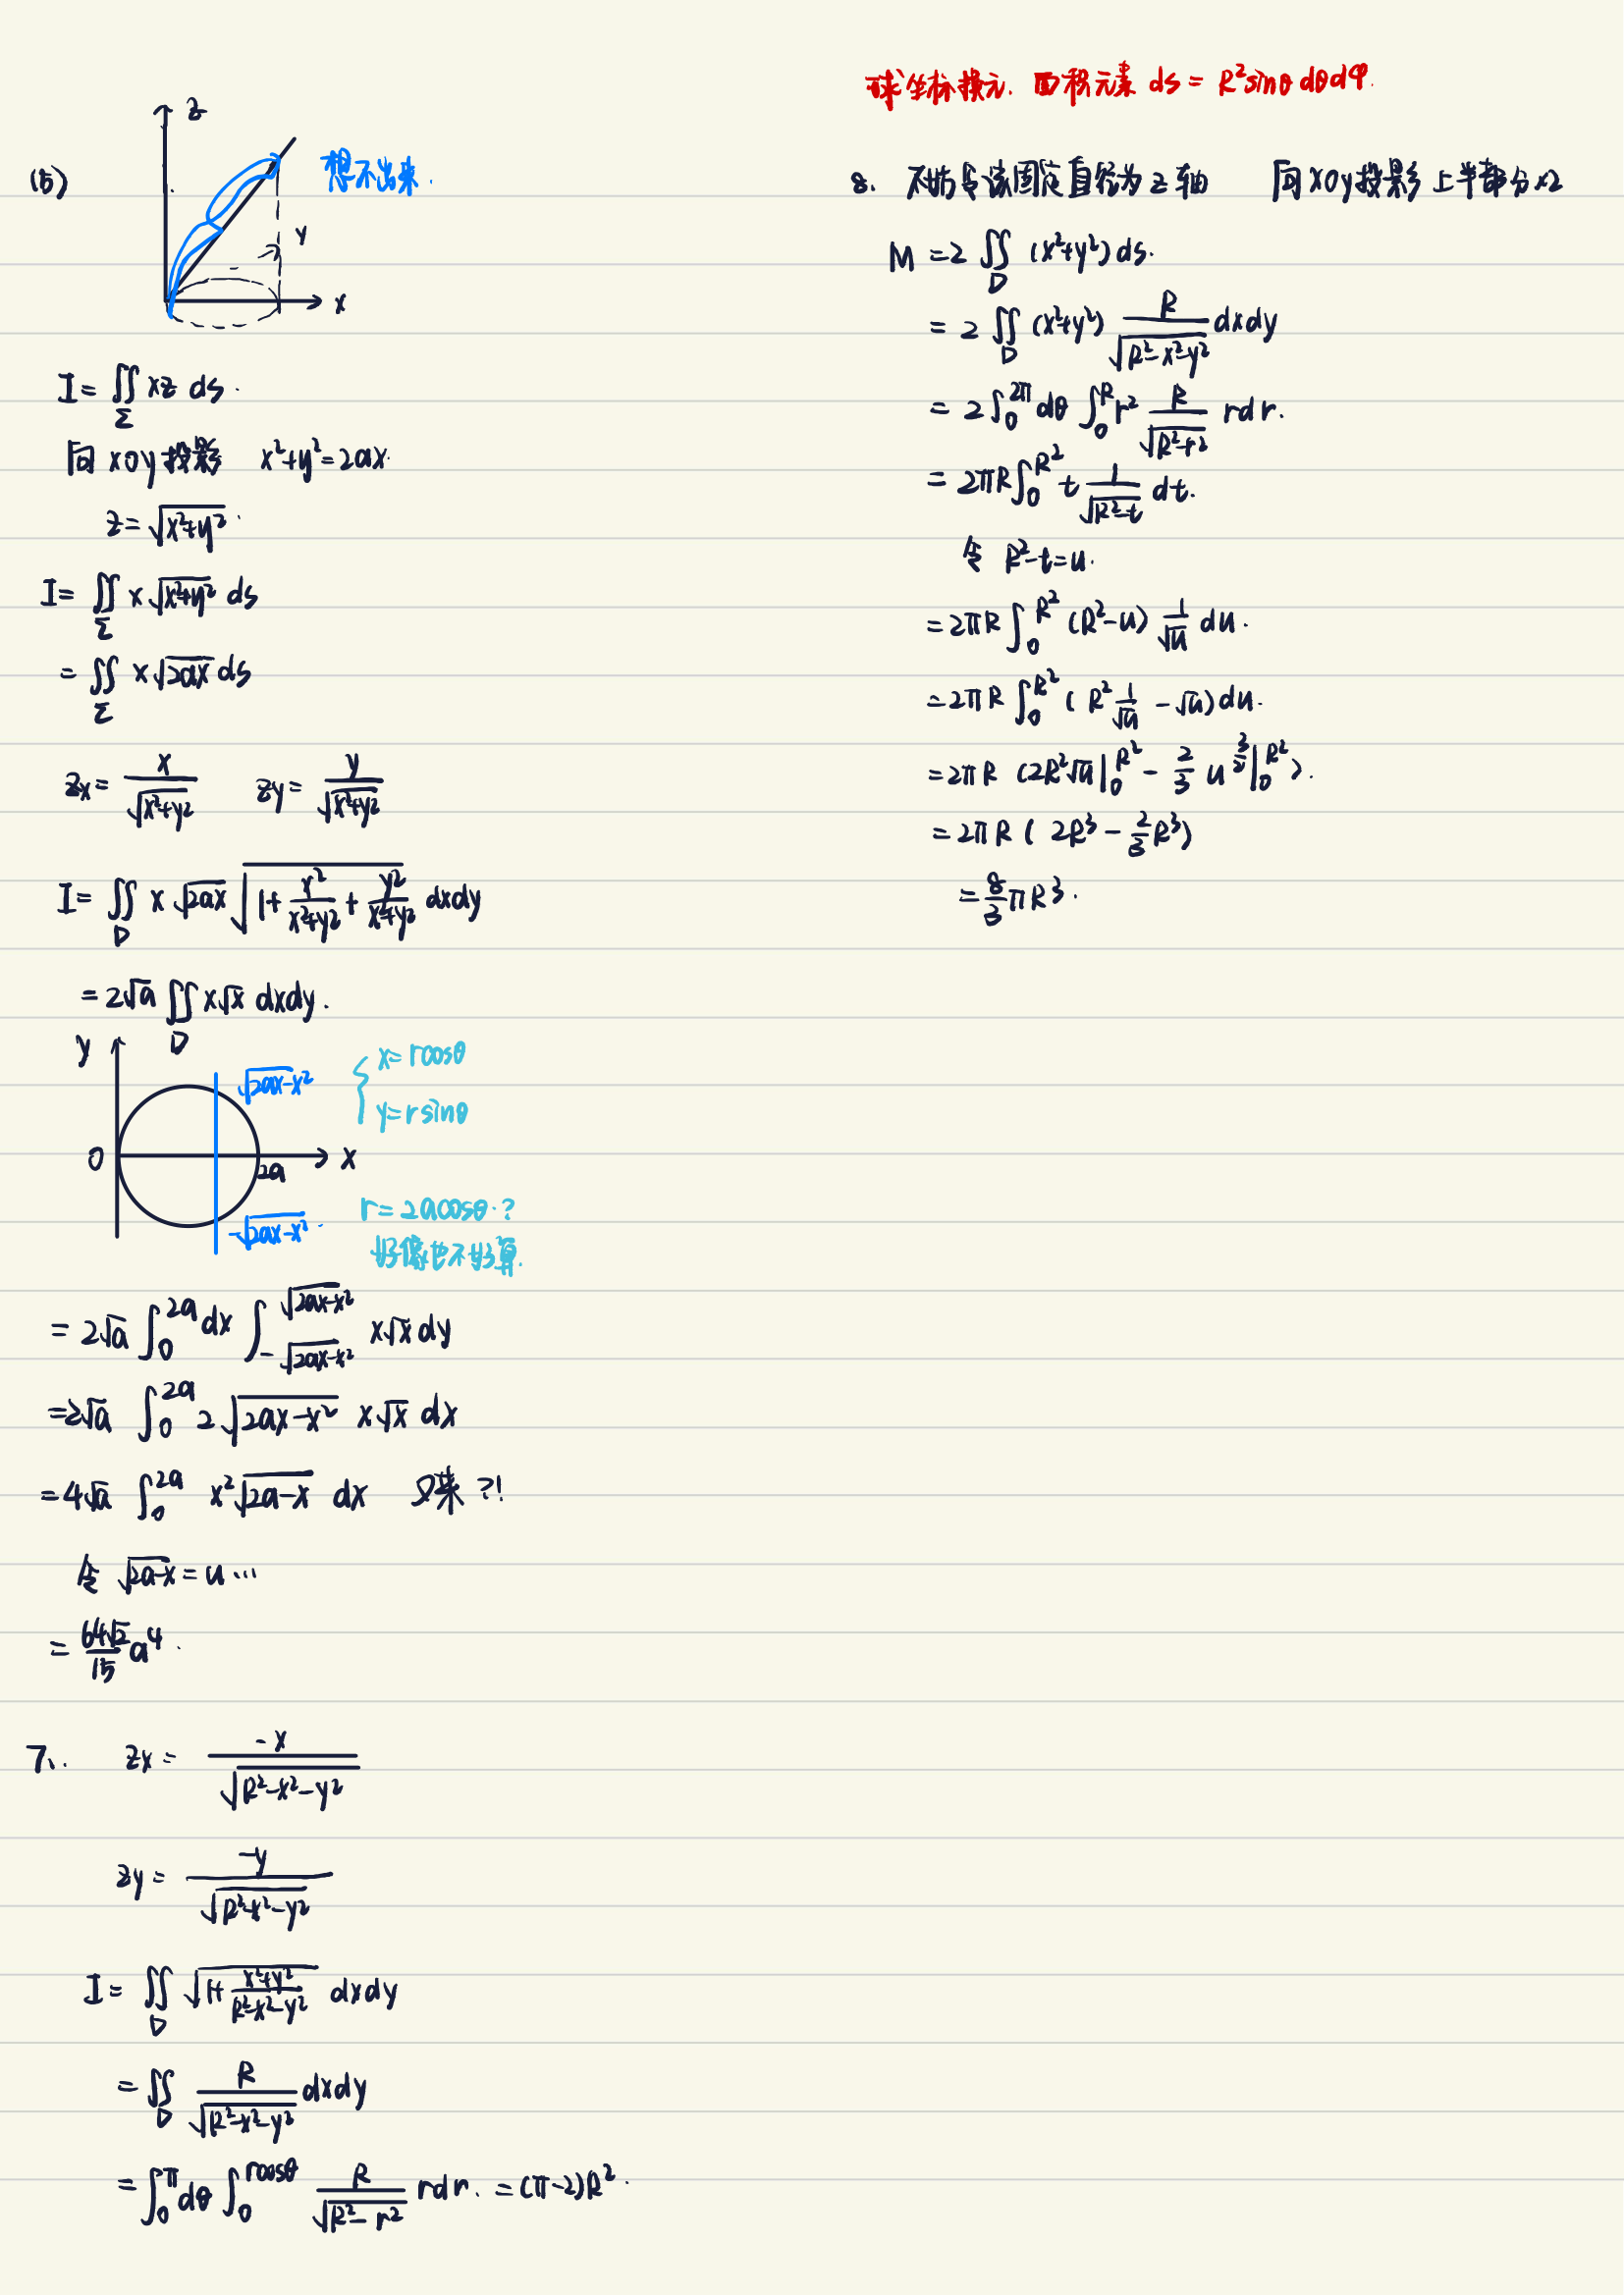 (5)
z
想不出来.
y
x
I = ∬_Σ xz ds.
向 xoy 投影 x²+y²=2ax.
z = √(x²+y²).
I = ∬_Σ x√(x²+y²) ds
= ∬_Σ x√(2ax) ds
zx = x/√(x²+y²) zy = y/√(x²+y²)
I = ∬_D x√(2ax) √(1+x²/(x²+y²)+y²/(x²+y²)) dxdy
= 2√a ∬_D x√x dxdy.
y
√(2ax-x²)
{ x=rcosθ
y=rsinθ
0
x
2a
-√(2ax-x²)
r=2acosθ.?
好像也不好算.
= 2√a ∫_0^{2a} dx ∫_{-√(2ax-x²)}^{√(2ax-x²)} x√x dy
= 2√a ∫_0^{2a} 2√(2ax-x²) x√x dx
= 4√a ∫_0^{2a} x²√(2a-x) dx 又来?!
令 √(2a-x) = u ...
= 64√2/15 a⁴.
7. zx = -x/√(R²-x²-y²)
zy = -y/√(R²-x²-y²)
I = ∬_D √(1+(x²+y²)/(R²-x²-y²)) dxdy
= ∬_D R/√(R²-x²-y²) dxdy
= ∫_0^π dθ ∫_0^{rcosθ} R/√(R²-r²) rdr. = (π-2)R².
球坐标换元. 面积元素 ds = R²sinθdθdφ.
8. 不妨令该固定直径为z轴 向xoy投影上半部分×2
M = 2∬_D (x²+y²) ds.
= 2∬_D (x²+y²) R/√(R²-x²-y²) dxdy
= 2∫_0^{2π} dθ ∫_0^R r² R/√(R²+r²) rdr.
= 2πR∫_0^{R²} t 1/√(R²-t) dt.
令 R²-t=u.
= 2πR ∫_0^{R²} (R²-u) 1/√u du.
= 2πR ∫_0^{R²} (R² 1/√u - √u) du.
= 2πR (2R²√u|_0^{R²} - 2/3 u^{3/2}|_0^{R²}).
= 2πR (2R³ - 2/3 R³)
= 8/3 πR³.